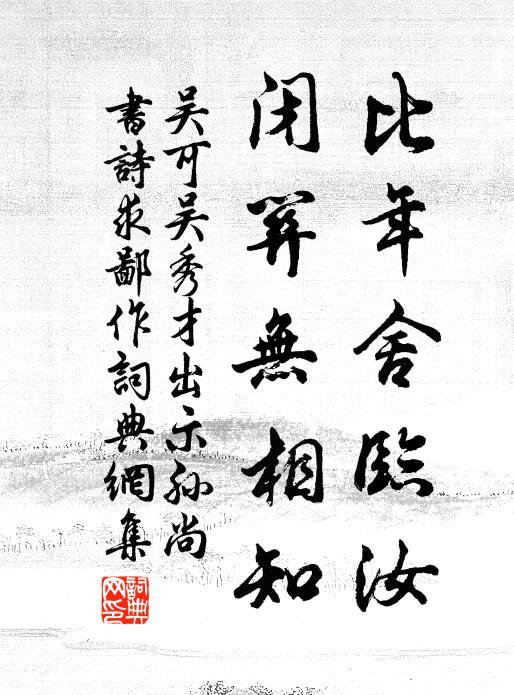 比年舍臨汝
閉關無相知
吳可吳秀才出示孫尚
書詩求鄙作詞典網集
詞典网印